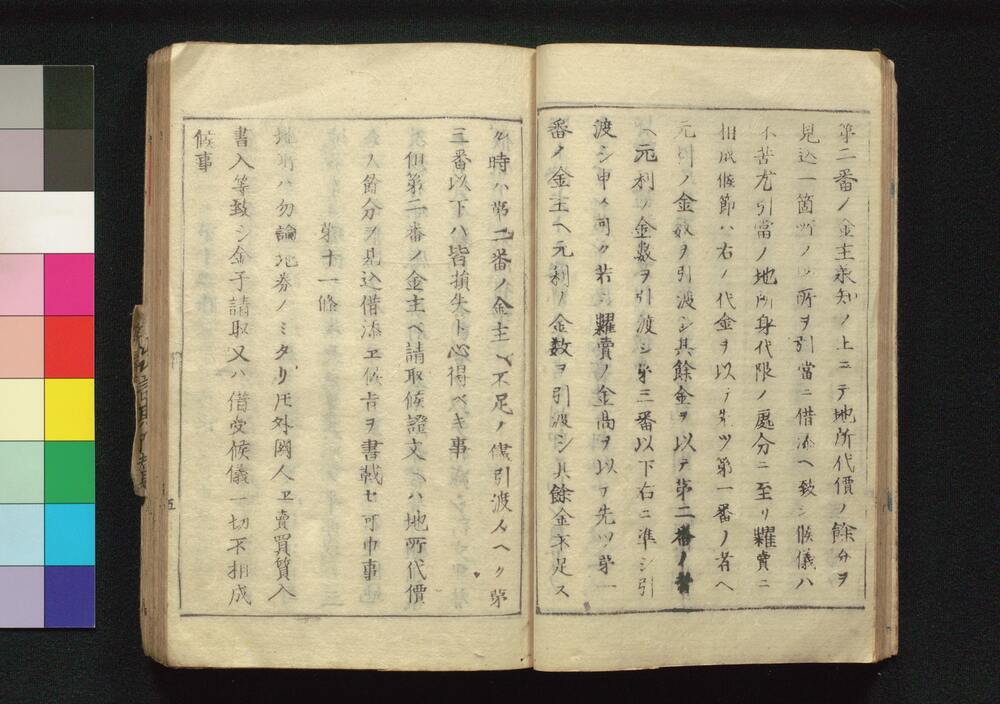 第二番ノ金主承知ノ上ニテ地所代價ノ餘分ヲ
見込一箇所ノ地所ヲ引當ニ借添ヘ致シ候儀ハ
不苦尤引當ノ地所身代限ノ處分ニ至リ糶賣ニ
相成候節ハ右ノ代金ヲ以テ先ツ第一番ノ者ヘ
元利ノ金数ヲ引渡シ其餘金ヲ以テ第二番ノ者
ヘ元利ノ金数ヲ引渡シ第三番以下右ニ準シ引
渡シ申ス可ク若シ糶賣ノ金高ヲ以テ先ツ第一
番ノ金主ヘ元利ノ金数ヲ引渡シ其餘金不足ス
ル時ハ第二番ノ金主ヘ不足ノ儘引渡スヘク第
三番以下ハ皆損失ト心得ベキ事
但第二番ノ金主ヘ請取候證文ヘハ地所代價
ノ餘分ヲ見込借添ヱ候旨ヲ書載セ可申事
第十一條
地所ハ勿論地券ノミタリ𪜈外國人ヱ賣買質入
書入等致シ金子請取又ハ借受候儀一切不相成
候事
五